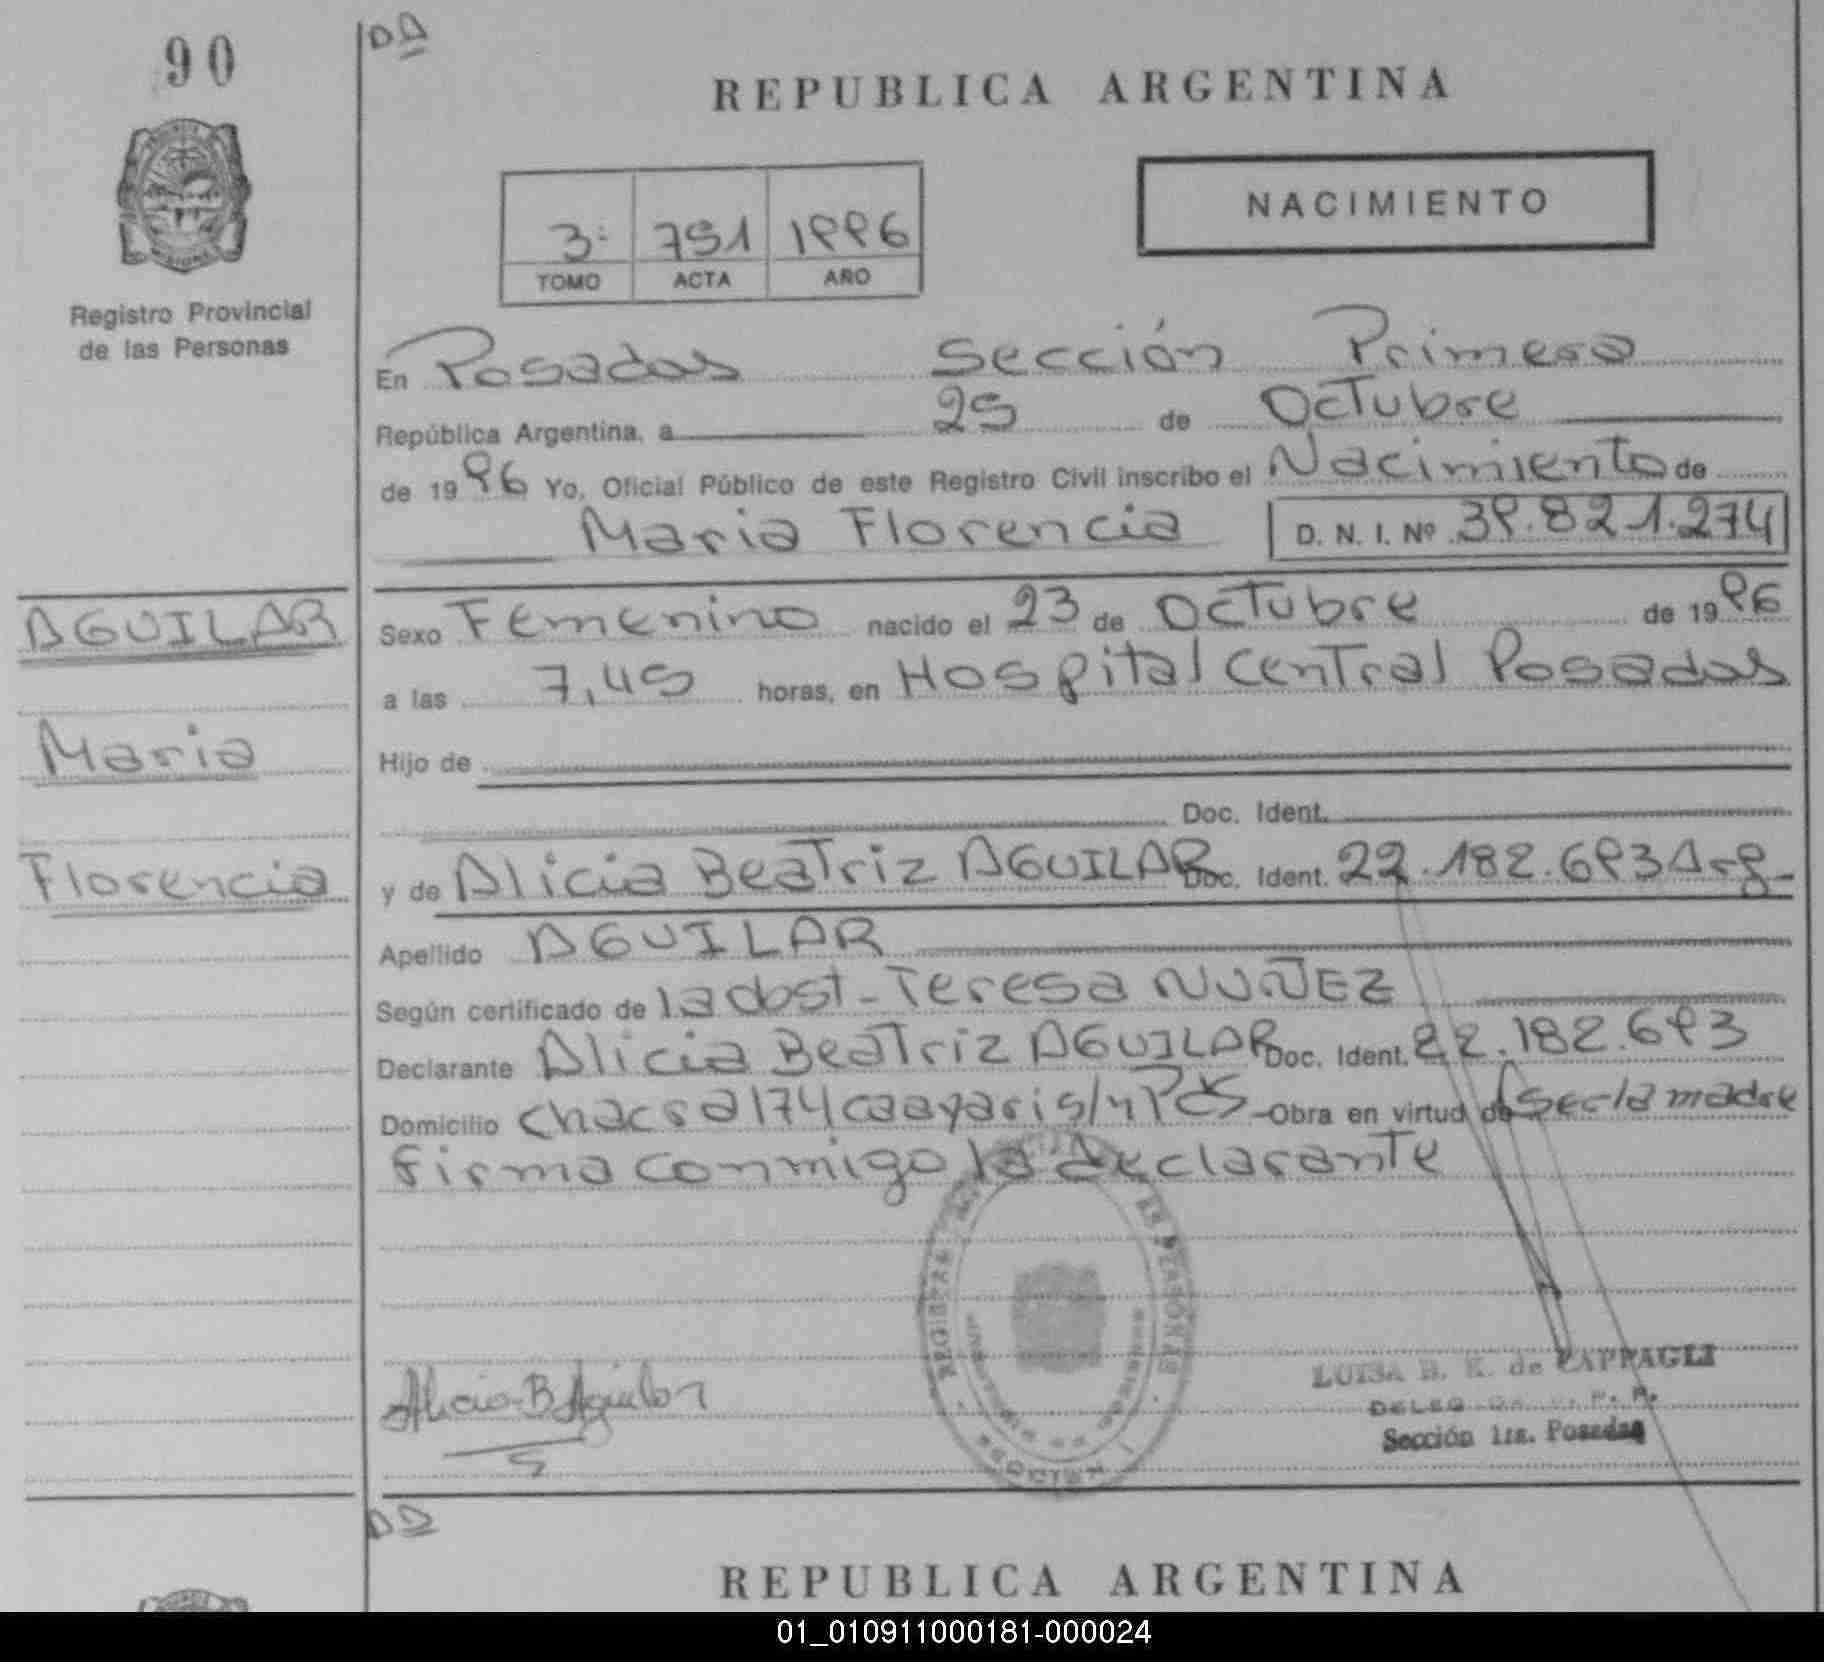 90
DA
REPUBLICA ARGENTINA
NACIMIENTO
3: 751 1996
TOMO ACTA AÑO
Registro Provincial
de las Personas
En Posadas Sección Primera
República Argentina, a 25 de Octubre
de 1996 Yo, Oficial Público de este Registro Civil inscribo el Nacimiento de
Maria Florencia D. N. I. Nº 39.821.274
AGUILAR
Maria
Florencia
Sexo Femenino nacido el 23 de Octubre de 1996
a las 7,45 horas, en Hospital Central Posadas
Hijo de
Doc. Ident.
y de Alicia Beatriz AGUILAR Doc. Ident. 22.182.693 Arg
Apellido AGUILAR
Según certificado de la obst-Teresa NUÑEZ
Declarante Alicia Beatriz AGUILAR Doc. Ident. 22.182.693
Domicilio chacra 174 caayari s/n Pdas Obra en virtud de ser la madre
firma conmigo la declarante
Alicia B Aguilar
LUISA H. K. de CAPPAGLI
Sección 1ra. Posadas
REPUBLICA ARGENTINA
01_010911000181-000024